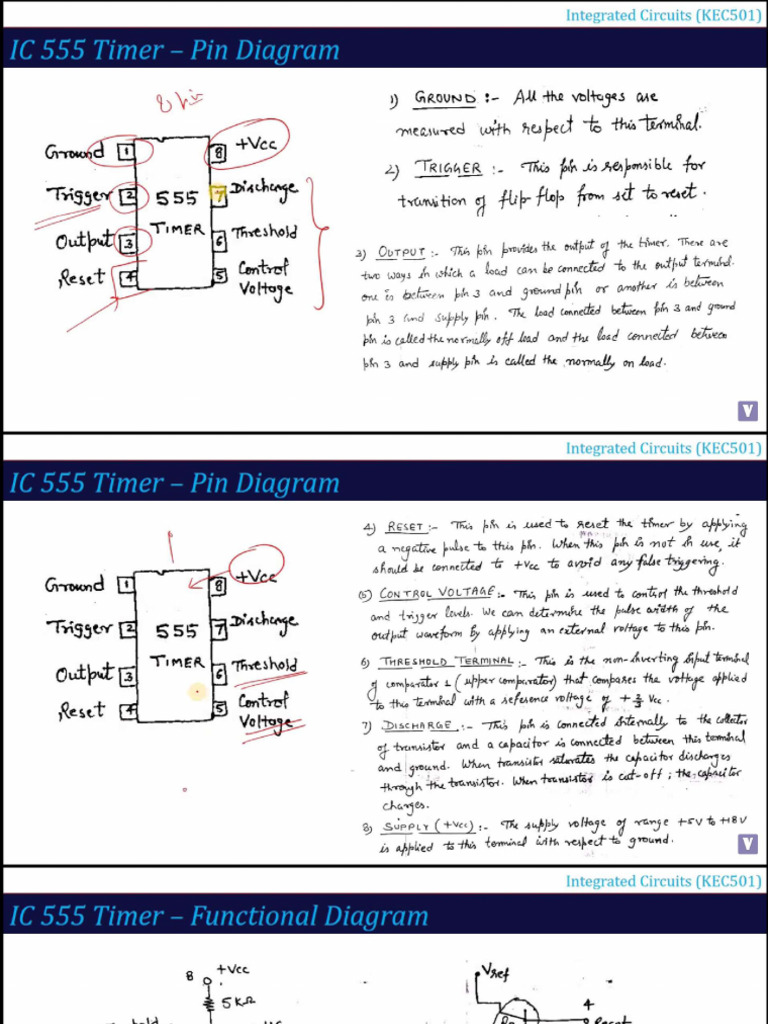 Integrated Circuits (KEC501)
IC 555 Timer – Pin Diagram
8 Pin
Ground 1
Trigger 2
Output 3
Reset 4
555
TIMER
8 +Vcc
7 Discharge
6 Threshold
5 Control
Voltage
1) GROUND :- All the voltages are
measured with respect to this terminal.
2) TRIGGER :- This pin is responsible for
transition of flip-flop from set to reset.
3) OUTPUT :- This pin provides the output of the timer. There are
two ways in which a load can be connected to the output terminal.
one is between pin 3 and ground pin or another is between
pin 3 and supply pin. The load connected between pin 3 and ground
pin is called the normally off load and the load connected between
pin 3 and supply pin is called the normally on load.
V
Integrated Circuits (KEC501)
IC 555 Timer – Pin Diagram
Ground 1
Trigger 2
Output 3
Reset 4
555
TIMER
8 +Vcc
7 Discharge
6 Threshold
5 Control
Voltage
4) RESET :- This pin is used to reset the timer by applying
a negative pulse to this pin. When this pin is not in use, it
should be connected to +Vcc to avoid any false triggering.
(5) CONTROL VOLTAGE :- This pin is used to control the threshold
and trigger levels. We can determine the pulse width of the
output waveform by applying an external voltage to this pin.
6) THRESHOLD TERMINAL :- This is the non-inverting input terminal
of comparator 1 (upper comparator) that compares the voltage applied
to this terminal with a reference voltage of + 2/3 Vcc.
7) DISCHARGE :- This pin is connected internally to the collector
of transistor and a capacitor is connected between this terminal
and ground. When transistor saturates the capacitor discharges
through the transistor. When transistor is cut-off ; the capacitor
charges.
8) SUPPLY (+Vcc) :- The supply voltage of range +5V to +18V
is applied to this terminal with respect to ground.
V
Integrated Circuits (KEC501)
IC 555 Timer – Functional Diagram
8 +Vcc
5KΩ
Vref
4
Reset